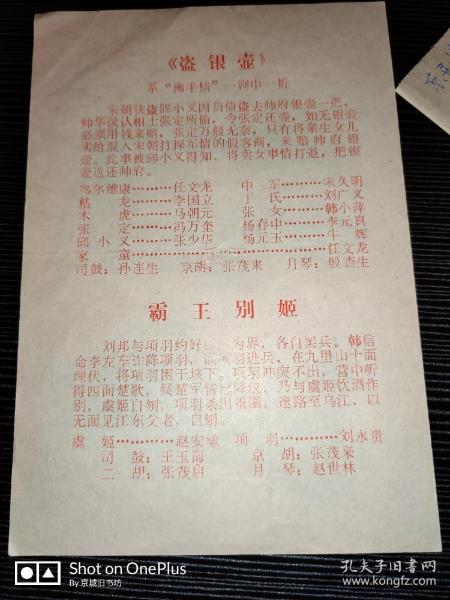 《盗银壶》
系“佛手情”一剧中一折
宋朝侠盗邱小义因负偷盗去帅府银壶一把，
帅华误认相士张定所偷，令张定还壶，如无银壶
必须用钱来赔，张定万般无奈，只有将亲生女儿
卖给混入宋朝打探军情的假客商，来赔帅府银
壶。此事被邱小义得知，将卖女事情打退，把银
壶送还帅府。
尔维康………任文龙 中军………宋久明
粘龙………李国立 丁氏………刘广义
木虎………马朝元 张女………韩小萍
张定………冯万奎 杨存中………李元真
邱小义………张少华 杨元玉………牛辉
家童………………………………任文龙
司鼓：孙连生 京胡：张茂来 月琴：殷杏生
霸王别姬
刘邦与项羽约好 为界，各自罢兵。韩信
命李左车诈降项羽， 项羽进兵，在九里山十面
埋伏，将项羽困于垓下，项羽冲突不出，营中听
得四面楚歌，疑楚军皆已降汉，乃与虞姬饮酒作
别，虞姬自刎，项羽杀出重围，迷路至乌江，以
无面见江东父老，自刎。
虞姬………赵安敏 项羽………刘永贵
司鼓：王玉海 京胡：张茂来
二胡：张茂启 月琴：赵世林
Shot on OnePlus
By 京城旧书坊
孔夫子旧书网
www.kongfz.com